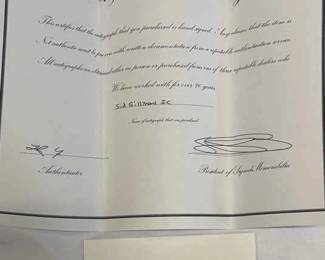 This certifies that the autograph that you purchased is hand signed. Any claims that the item is
Not authentic must be proven with written documentation from a reputable authentication service.
All autographs are obtained either in person or purchased from one of these reputable dealers who
We have worked with for over 20 years
Sid Gillman 3C
Name of autograph that was purchased
Authenticator
President of Signed Memorabilia